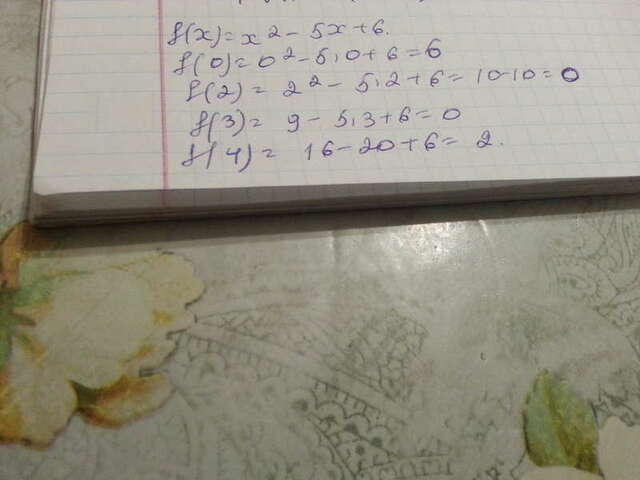 f(x)= x² - 5x+6.
f(0)= 0² - 5·0+6=6
f(2)= 2² - 5·2+6= 10-10=0
f(3)= 9 - 5·3+6= 0
f(4)= 16-20+6= 2.